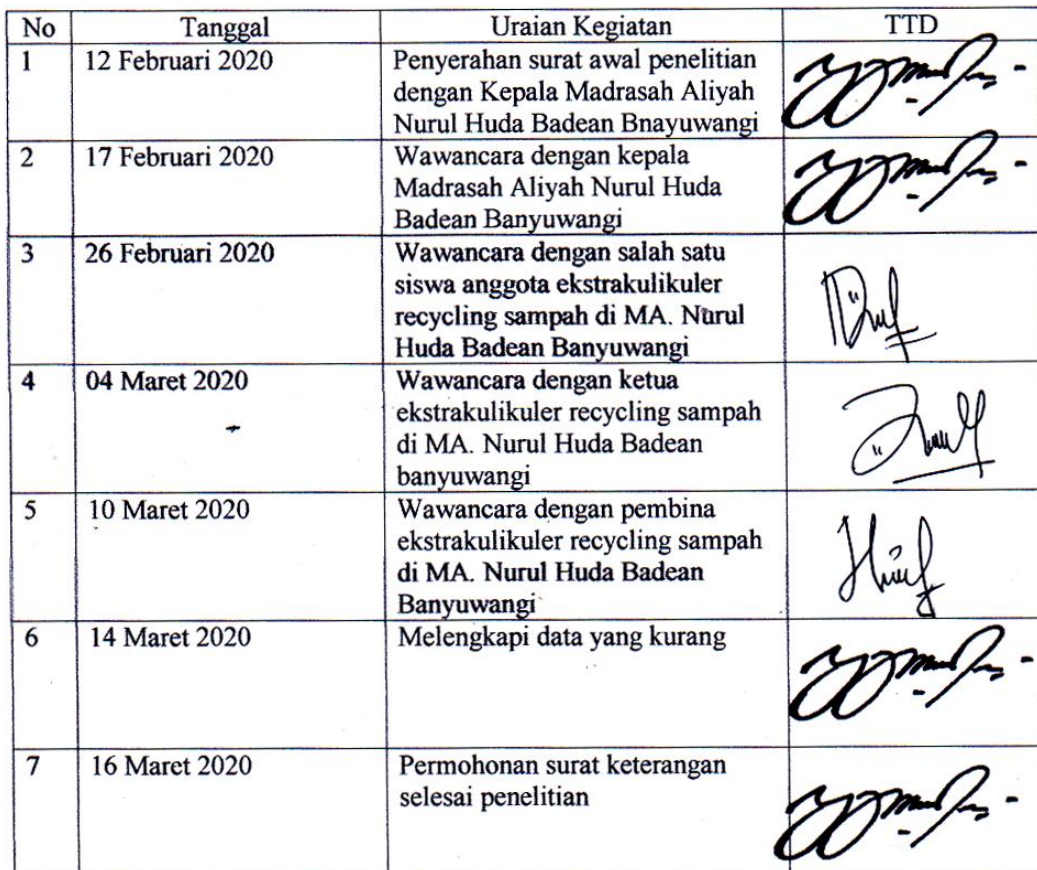 No Tanggal Uraian Kegiatan TTD
1 12 Februari 2020 Penyerahan surat awal penelitian
dengan Kepala Madrasah Aliyah
Nurul Huda Badean Bnayuwangi
2 17 Februari 2020 Wawancara dengan kepala
Madrasah Aliyah Nurul Huda
Badean Banyuwangi
3 26 Februari 2020 Wawancara dengan salah satu
siswa anggota ekstrakulikuler
recycling sampah di MA. Nurul
Huda Badean Banyuwangi
4 04 Maret 2020 Wawancara dengan ketua
ekstrakulikuler recycling sampah
di MA. Nurul Huda Badean
banyuwangi
5 10 Maret 2020 Wawancara dengan pembina
ekstrakulikuler recycling sampah
di MA. Nurul Huda Badean
Banyuwangi
6 14 Maret 2020 Melengkapi data yang kurang
7 16 Maret 2020 Permohonan surat keterangan
selesai penelitian